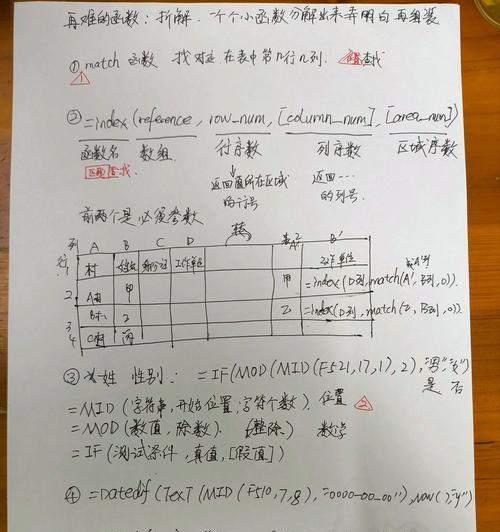 再难的函数: 拆解. 一个个小函数分解出来弄明白再组装
① match 函数 找对应 在表中第几行几列. 查找
1
② =index (reference, row_num, [column_num], [area_num])
函数名 数组. 行序数 列序数 区域序数
查找. 返回值所在区域的行号 返回……的列号.
前两个是必须参数
列 A B C D B'
行 村 姓名 身份证 工作单位 工作单位
2 A村 甲 甲 =index(D列, match(A', B列, 0)).
3 B村 乙 乙 =index(D列, match(乙, B列, 0)).
4 C村 丙
③ 性别: =IF(MOD(MID(F521,17,1),2),"男","女")
是 否
=MID (字符串, 开始位置, 字符个数). 位置 2
=MOD (数值, 除数). (整除) 数学
=IF (测试条件, 真值, [假值])
④ =Datedif (TEXT (MID (F510,7,8), "0000-00-00"), NOW(), "y")